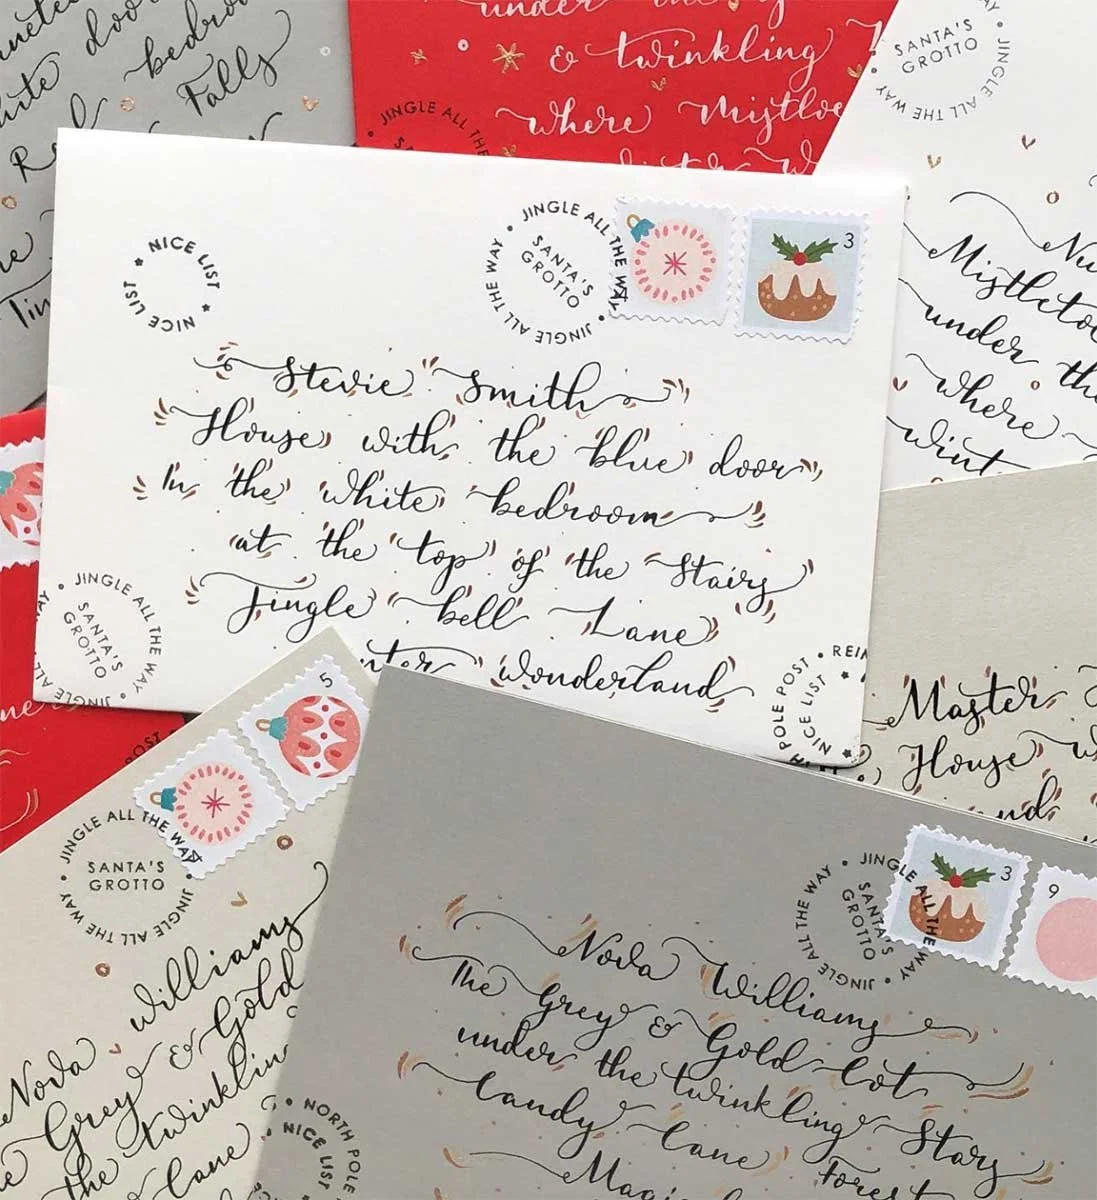 white door
bedroom
Falls
under
& twinkling
where Mistletoe
JINGLE ALL THE
SANTA'S
GROTTO
JINGLE ALL THE WAY
Mistletoe
under the
where
NICE LIST
NICE LIST
JINGLE ALL THE WAY
SANTA'S
GROTTO
JINGLE ALL THE WAY
3
Stevie Smith
House with the blue door
In the white bedroom
at the top of the Stairs
Jingle bell Lane
Wonderland
JINGLE ALL THE WAY
SANTA'S
GROTTO
JINGLE ALL
POLE POST
NICE LIST
Master
House
5
JINGLE ALL THE WAY
SANTA'S
GROTTO
JINGLE ALL THE WAY
Nova Williams
Grey & Gold
the twinkling
Lane
NORTH POLE
NICE LIST
3
9
JINGLE ALL THE WAY
SANTA'S
GROTTO
JINGLE ALL THE WAY
Nova Williams
The Grey & Gold Cot
under the twinkling Stars
Candy Cane Forest